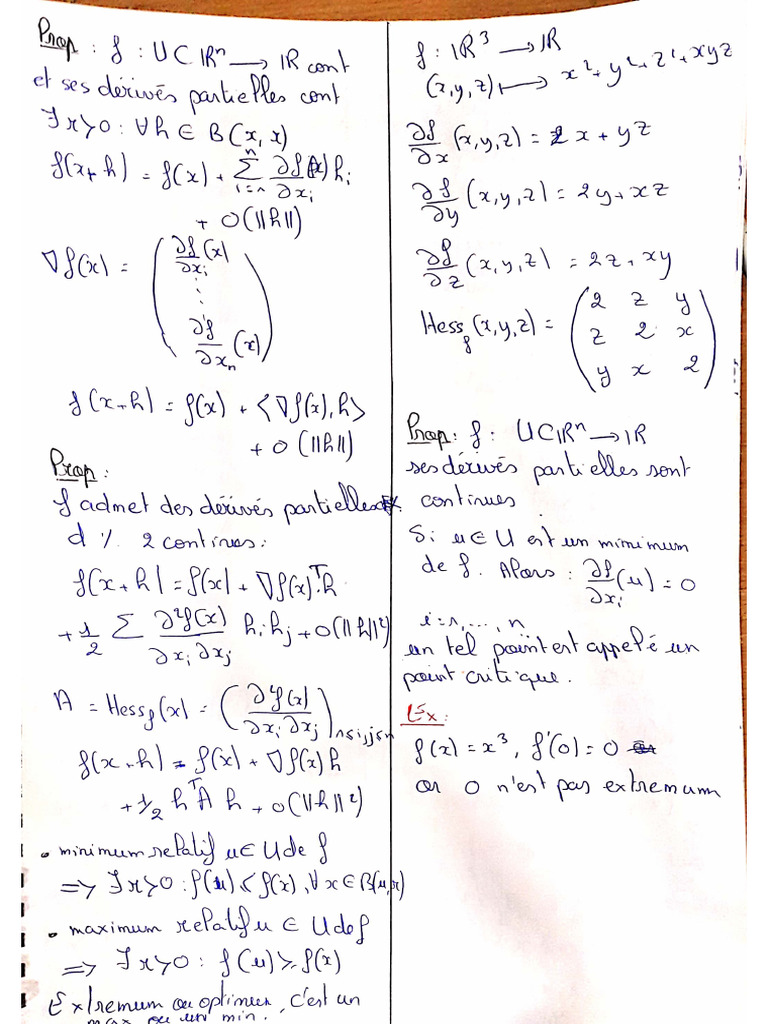 Prop : f : U ⊂ IRⁿ ⟶ IR cont
et ses dérivés partielles cont
∃ r > 0 : ∀ h ∈ B(x, r)
f(x+h) = f(x) + ∑ᵢ₌₁ⁿ ∂f/∂xᵢ (x) hᵢ
+ O(||h||)
∇f(x) = ( ∂f/∂xᵢ (x) ⋮ ∂f/∂xₙ (x) )
f(x+h) = f(x) + <∇f(x), h>
+ O(||h||)
Prop :
f admet des dérivés partielles
d % 2 continues :
f(x+h) = f(x) + ∇f(x)ᵀ.h
+ 1/2 ∑ ∂²f(x)/∂xᵢ∂xⱼ hᵢ hⱼ + O(||h||²)
A = Hess_f(x) = (∂²f(x)/∂xᵢ∂xⱼ)₁≤i,j≤n
f(x+h) = f(x) + ∇f(x) h
+ 1/2 hᵀ A h + O(||h||²)
• minimum relatif u ∈ U de f
=> ∃ r > 0 : f(u) ≤ f(x), ∀ x ∈ B(u,r)
• maximum relatif u ∈ U de f
=> ∃ r > 0 : f(u) ≥ f(x)
Extremum ou optimum, c'est un
max ou un min.
f : IR³ ⟶ IR
(x,y,z) ⟼ x² + y² + z² + xyz
∂f/∂x (x,y,z) = 2x + yz
∂f/∂y (x,y,z) = 2y + xz
∂f/∂z (x,y,z) = 2z + xy
Hess_f(x,y,z) = ( 2 z y
z 2 x
y x 2 )
Prop : f : U ⊂ IRⁿ ⟶ IR
ses dérivés partielles sont
continues
Si u ∈ U est un minimum
de f. Alors : ∂f/∂xᵢ (u) = 0
i = 1, ..., n
un tel point est appelé un
point critique.
Ex :
f(x) = x³, f'(0) = 0
or 0 n'est pas extremum